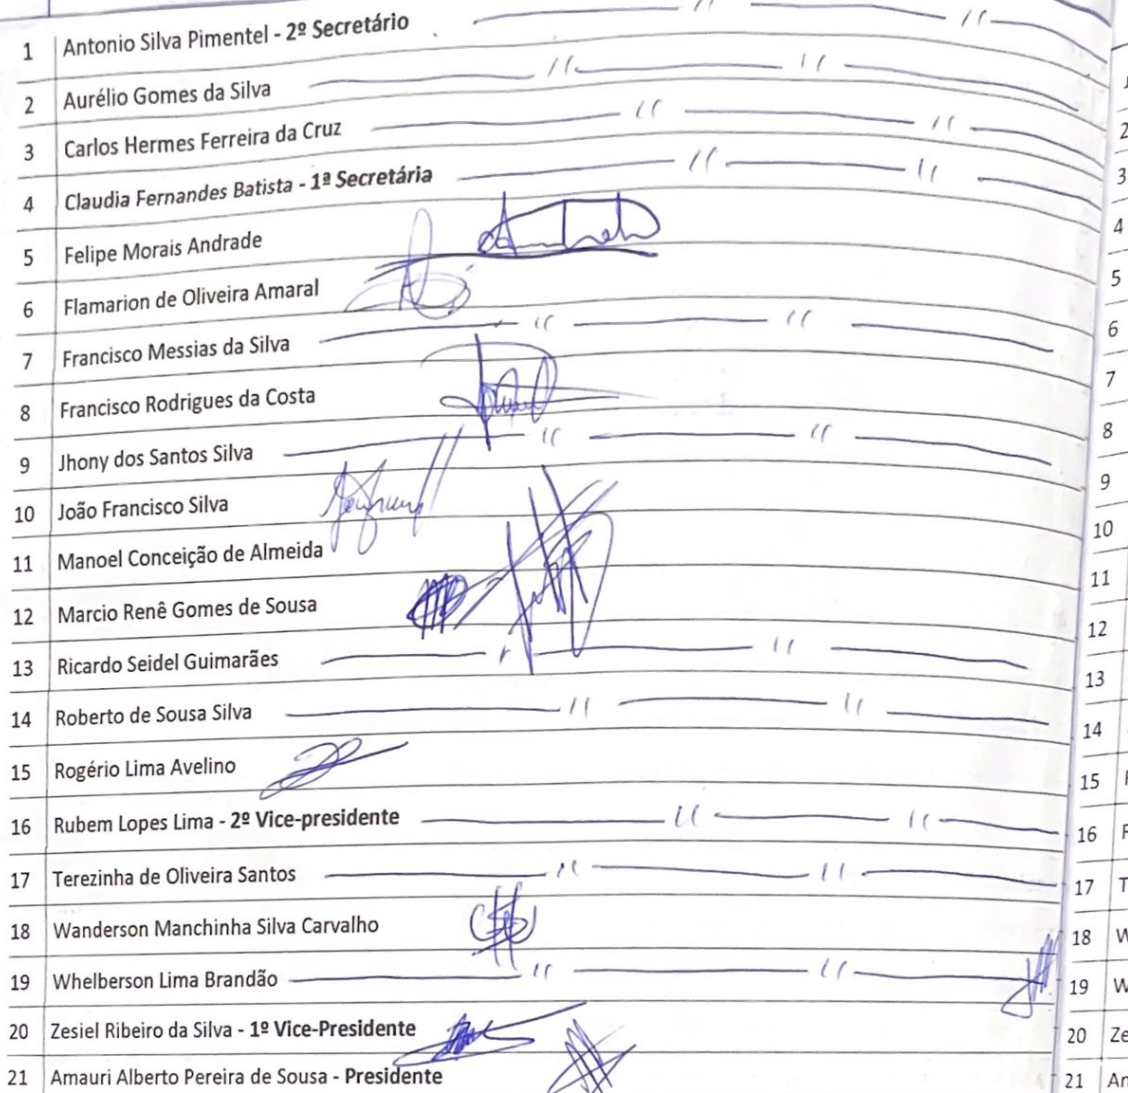 1 Antonio Silva Pimentel - 2º Secretário
2 Aurélio Gomes da Silva
3 Carlos Hermes Ferreira da Cruz
4 Claudia Fernandes Batista - 1ª Secretária
5 Felipe Morais Andrade
6 Flamarion de Oliveira Amaral
7 Francisco Messias da Silva
8 Francisco Rodrigues da Costa
9 Jhony dos Santos Silva
10 João Francisco Silva
11 Manoel Conceição de Almeida
12 Marcio Renê Gomes de Sousa
13 Ricardo Seidel Guimarães
14 Roberto de Sousa Silva
15 Rogério Lima Avelino
16 Rubem Lopes Lima - 2º Vice-presidente
17 Terezinha de Oliveira Santos
18 Wanderson Manchinha Silva Carvalho
19 Whelberson Lima Brandão
20 Zesiel Ribeiro da Silva - 1º Vice-Presidente
21 Amauri Alberto Pereira de Sousa - Presidente
2
3
4
5
6
7
8
9
10
11
12
13
14
15
16
17
18
19
20
21